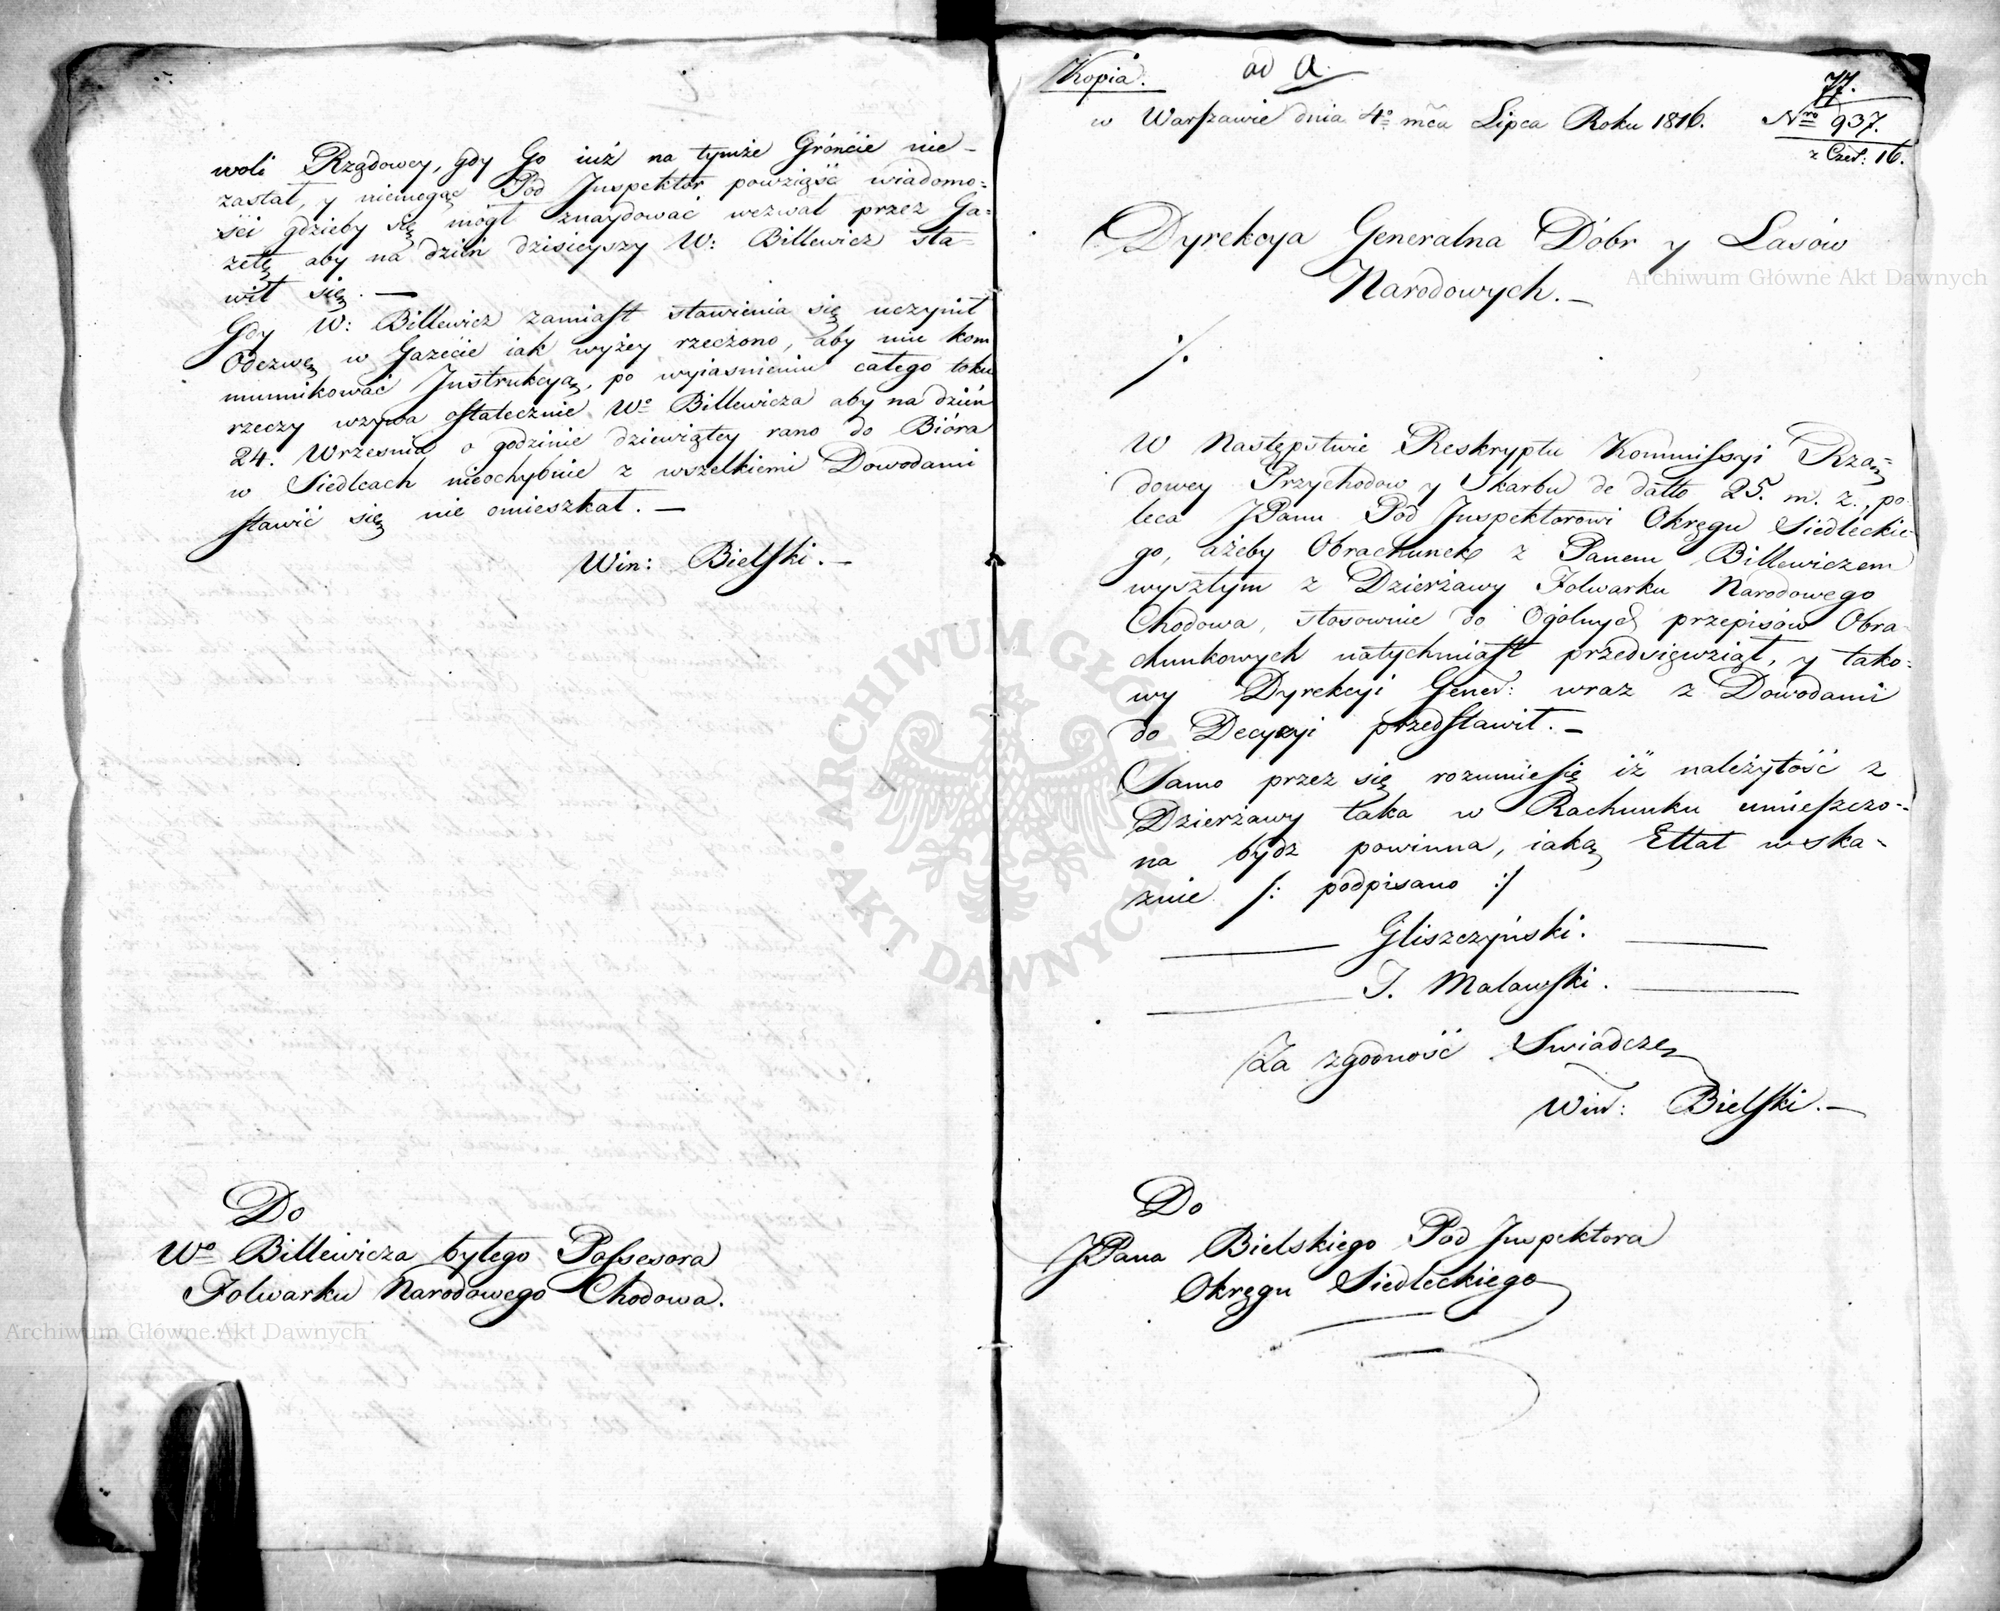 woli Rządowey, gdy Go iuż na tymże Gróncie nie-
zastał, y niemogąc Pod Juspektor powziąść wiadomo=
ści gdzieby się mógł znaydować wezwał przez Ga=
zetę aby na dzień dzisieyszy W: Billewicz sta=
wił się. —
Gdy W: Billewicz zamiast stawienia się uczynił
Odezwę w Gazecie iak wyżey rzeczono, aby mu kom
munikować Instrukcyą, po wyiasnieniu całego toku
rzeczy wzywa ostatecznie Wo Billewicza aby na dzień
24. Września o godzinie dziewiątey rano do Bióra
w Siedlcach nieochybnie z wszelkiemi Dowodami
stawić się nie omieszkał. —
Win: Bielski. —
Do
Wo Billewicza byłego Possesora
Folwarku Narodowego Chodowa.
Kopia. ad A.
77.
w Warszawie dnia 4o mca Lipca Roku 1816. Nro 937.
z Czer: 16.
Dyrekcya Generalna Dóbr y Lasów
Narodowych. —
W Następstwie Reskryptu Kommissyi Rzą=
dowey Przychodow y Skarbu de datto 25. m. z., po
leca JPanu Pod Juspektorowi Okręgu Siedleckie
go, ażeby Obrachunek z Panem Billewiczem
wyszłym z Dzierżawy Folwarku Narodowego
Chodowa, stosownie do Ogólnych przepisów Obra
chunkowych natychmiast przedsięwziął, y tako=
wy Dyrekcyi Gener: wraz z Dowodami
do Decyzyi przedstawił. —
Samo przez się rozumie się iż należytość z
Dzierżawy taka w Rachunku umieszczo=
na bydz powinna, iaką Ettat wska-
znie /: podpisano :/
Gliszczyński.
J. Malawski.
Za zgodność Swiadczę
Win: Bielski. —
Do
JPana Bielskiego Pod Juspektora
Okręgu Siedleckiego
Archiwum Główne Akt Dawnych
Archiwum Główne Akt Dawnych
ARCHIWUM GŁÓWNE · AKT DAWNYCH ·